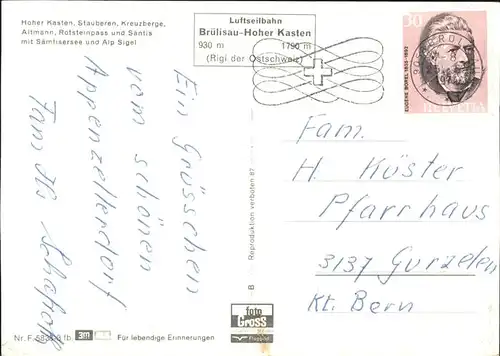 Hoher Kasten, Stauberen, Kreuzberge,
Altmann, Rotsteinpass und Säntis
mit Sämtisersee und Alp Sigel
Luftseilbahn
Brülisau-Hoher Kasten
930 m 1790 m
(Rigi der Ostschweiz)
30
EUGÈNE BOREL 1835-1892
HELVETIA
Ein Grüsschen
vom schönen
Appenzellerdorf
Fam.
Fam.
H. Küster
Pfarrhaus
3137 Gurzelen
Kt. Bern
B Reproduktion verboten 87
foto
Gross
Nr. F. fb.
3m
Für lebendige Erinnerungen